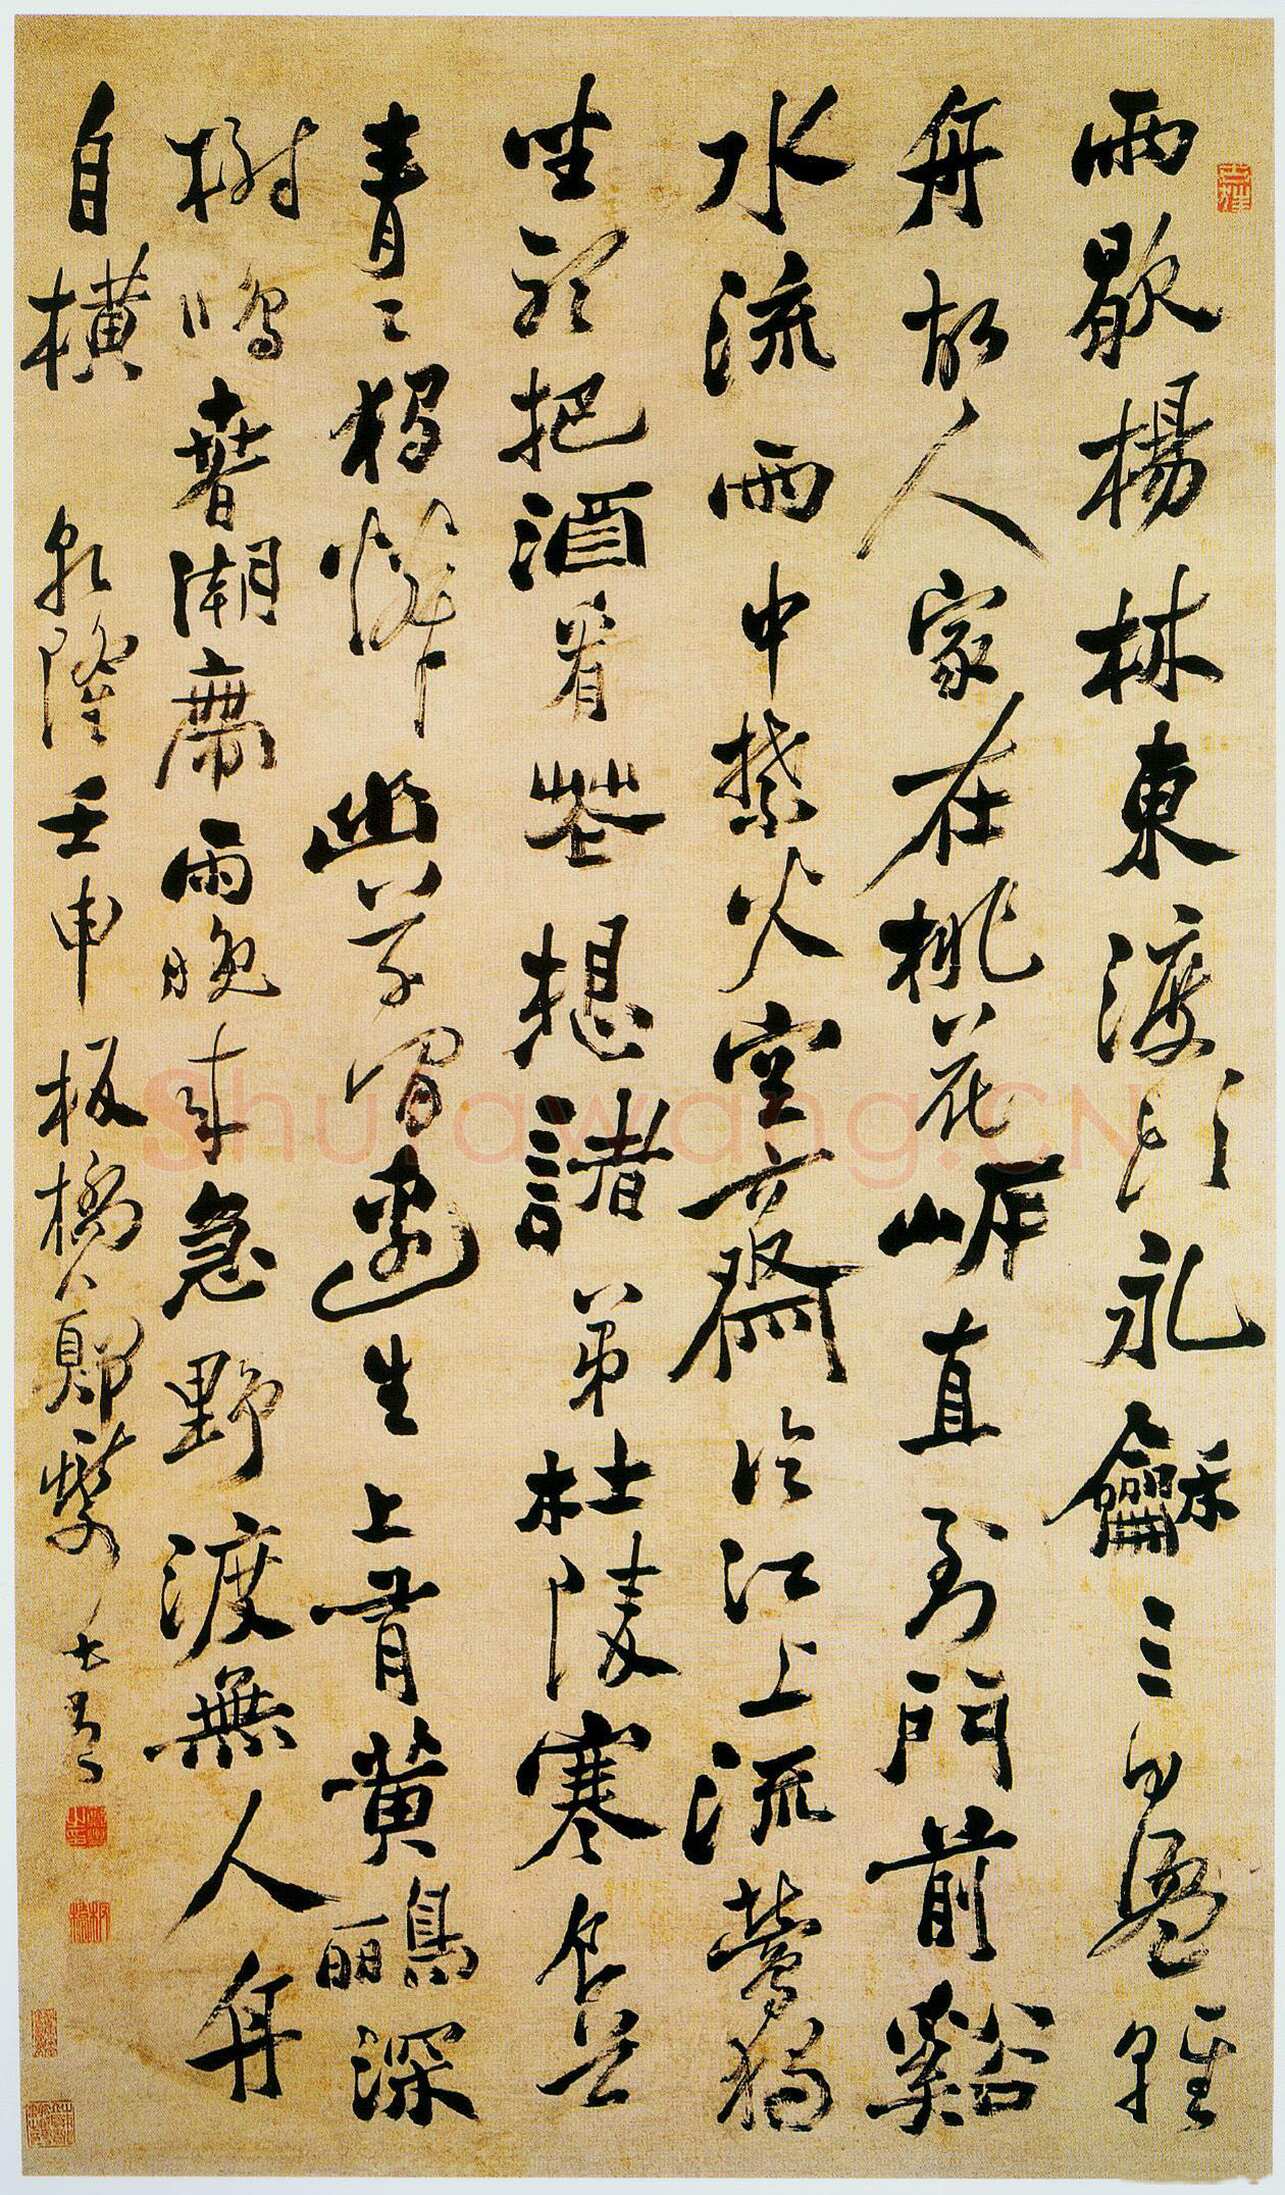 雨歇楊林東渡頭永龢三日盪輕
舟故人家在桃花岸直到門前谿
水流雨中禁火空齋冷江上流鶯獨
坐聽把酒看花想諸弟杜陵寒食草
青々獨憐幽草澗邊生上有黃鸝深
樹鳴春潮帶雨晚來急野渡無人舟
自橫 乾隆壬申板橋鄭燮
Shufawang.CN